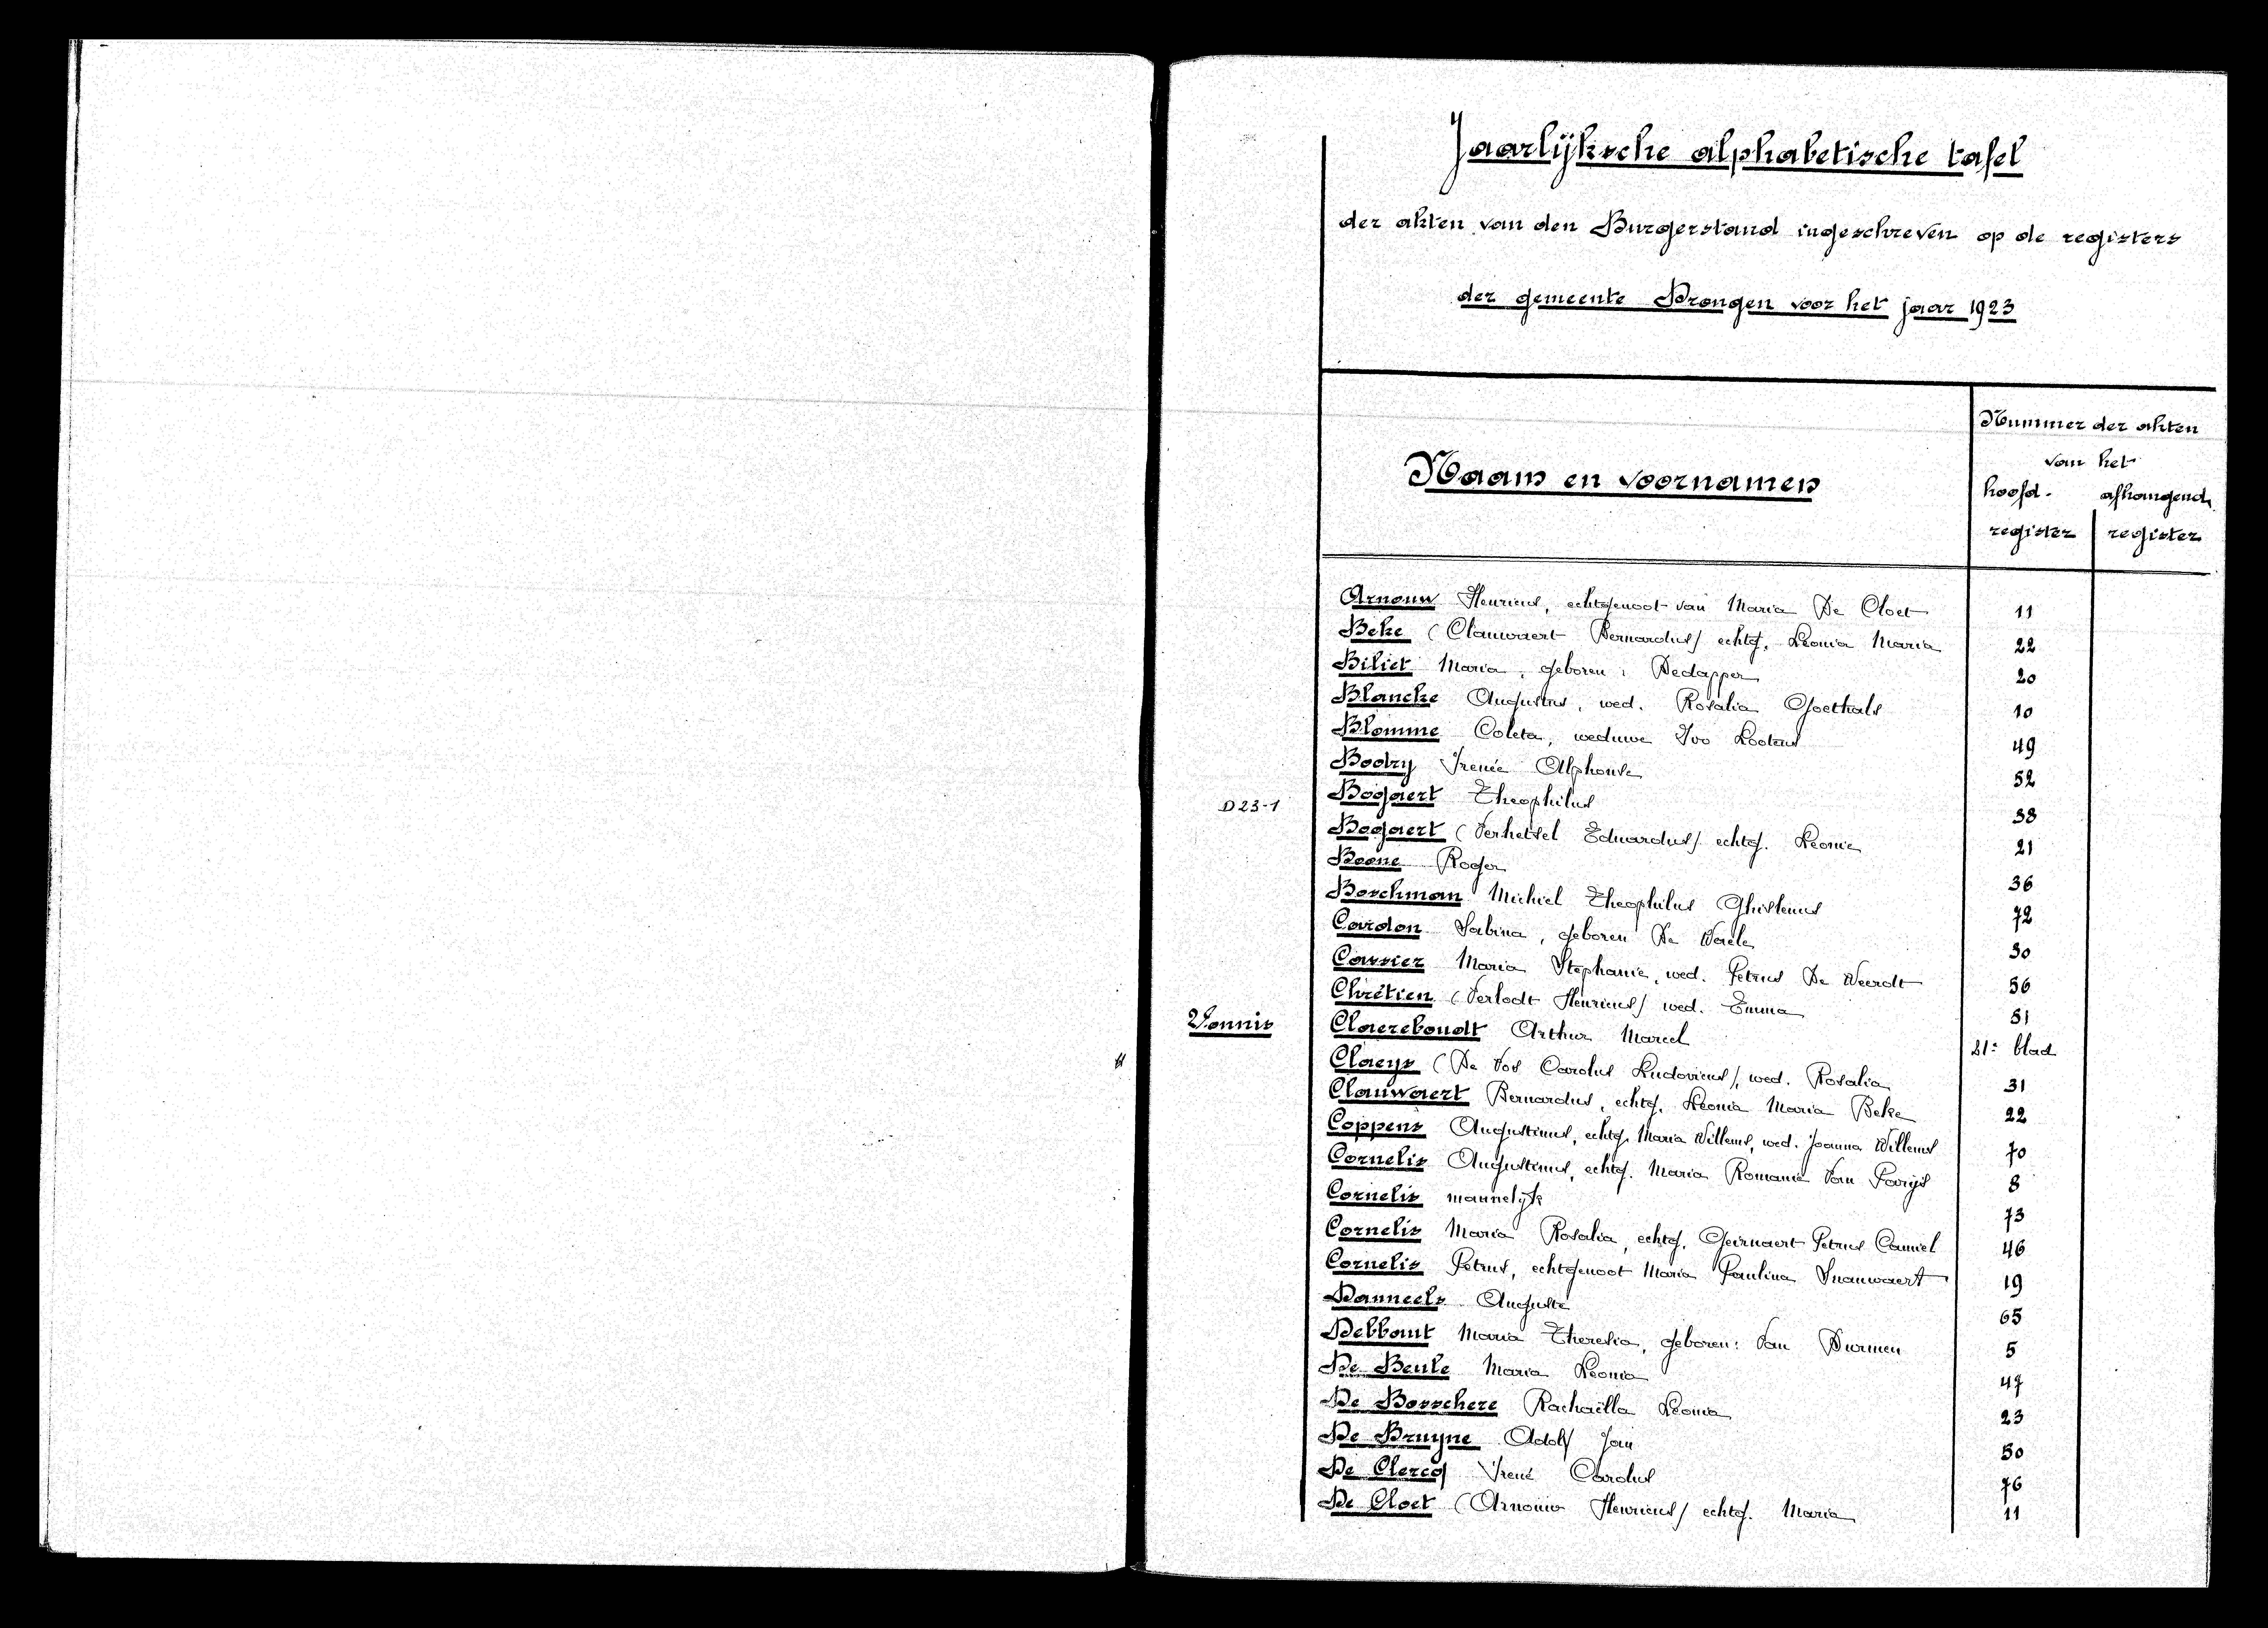 Jaarlijksche alphabetische tafel
der akten van den Burgerstand ingeschreven op de registers
der gemeente Drongen voor het jaar 1923
Naam en voornamen
Nummer der akten
van het
hoofd- afhangend
register register
Arnouw Henricus, echtgenoot van Maria De Cloet 11
Beke (Clauwaert Bernardus) echtg. Leonia Maria 22
Biliet Maria, geboren: Dedapper 20
Blancke Augustus, wed. Rosalia Goethals 10
Blomme Coleta, weduwe Ivo Lootens 49
Bodry Irenée Alphonse 52
D23-1 Bogaert Theophilus 38
Bogaert (Verhetsel Eduardus) echtg. Leonie 21
Boone Roger 36
Boschman Michiel Theophilus Ghislenus 72
Cardon Sabina, geboren De Waele 30
Cassier Maria Stephanie, wed. Petrus De Weerdt 56
Chrétien (Verlodt Henricus) wed. Emma 51
Vonnis Claereboudt Arthur Marcel 21e blad
Claeys (De Vos Carolus Ludovicus), wed. Rosalia 31
Clauwaert Bernardus, echtg. Leonia Maria Beke 22
Coppens Augustinus, echtg. Maria Willems, wed. Joanna Willems 70
Cornelis Augustinus, echtg. Maria Romanie Van Parijs 8
Cornelis mannelijk 73
Cornelis Maria Rosalia, echtg. Geirnaert Petrus Camiel 46
Cornelis Petrus, echtgenoot Maria Paulina Snauwaert 19
Danneels Auguste 65
Debbaut Maria Theresia, geboren: Van Durmen 5
De Beule Maria Leonia 47
De Bosschere Rachaëlla Leonia 23
De Bruyne Adolf Jan 50
De Clercq Irené Carolus 76
De Cloet (Arnouw Henricus) echtg. Maria 11